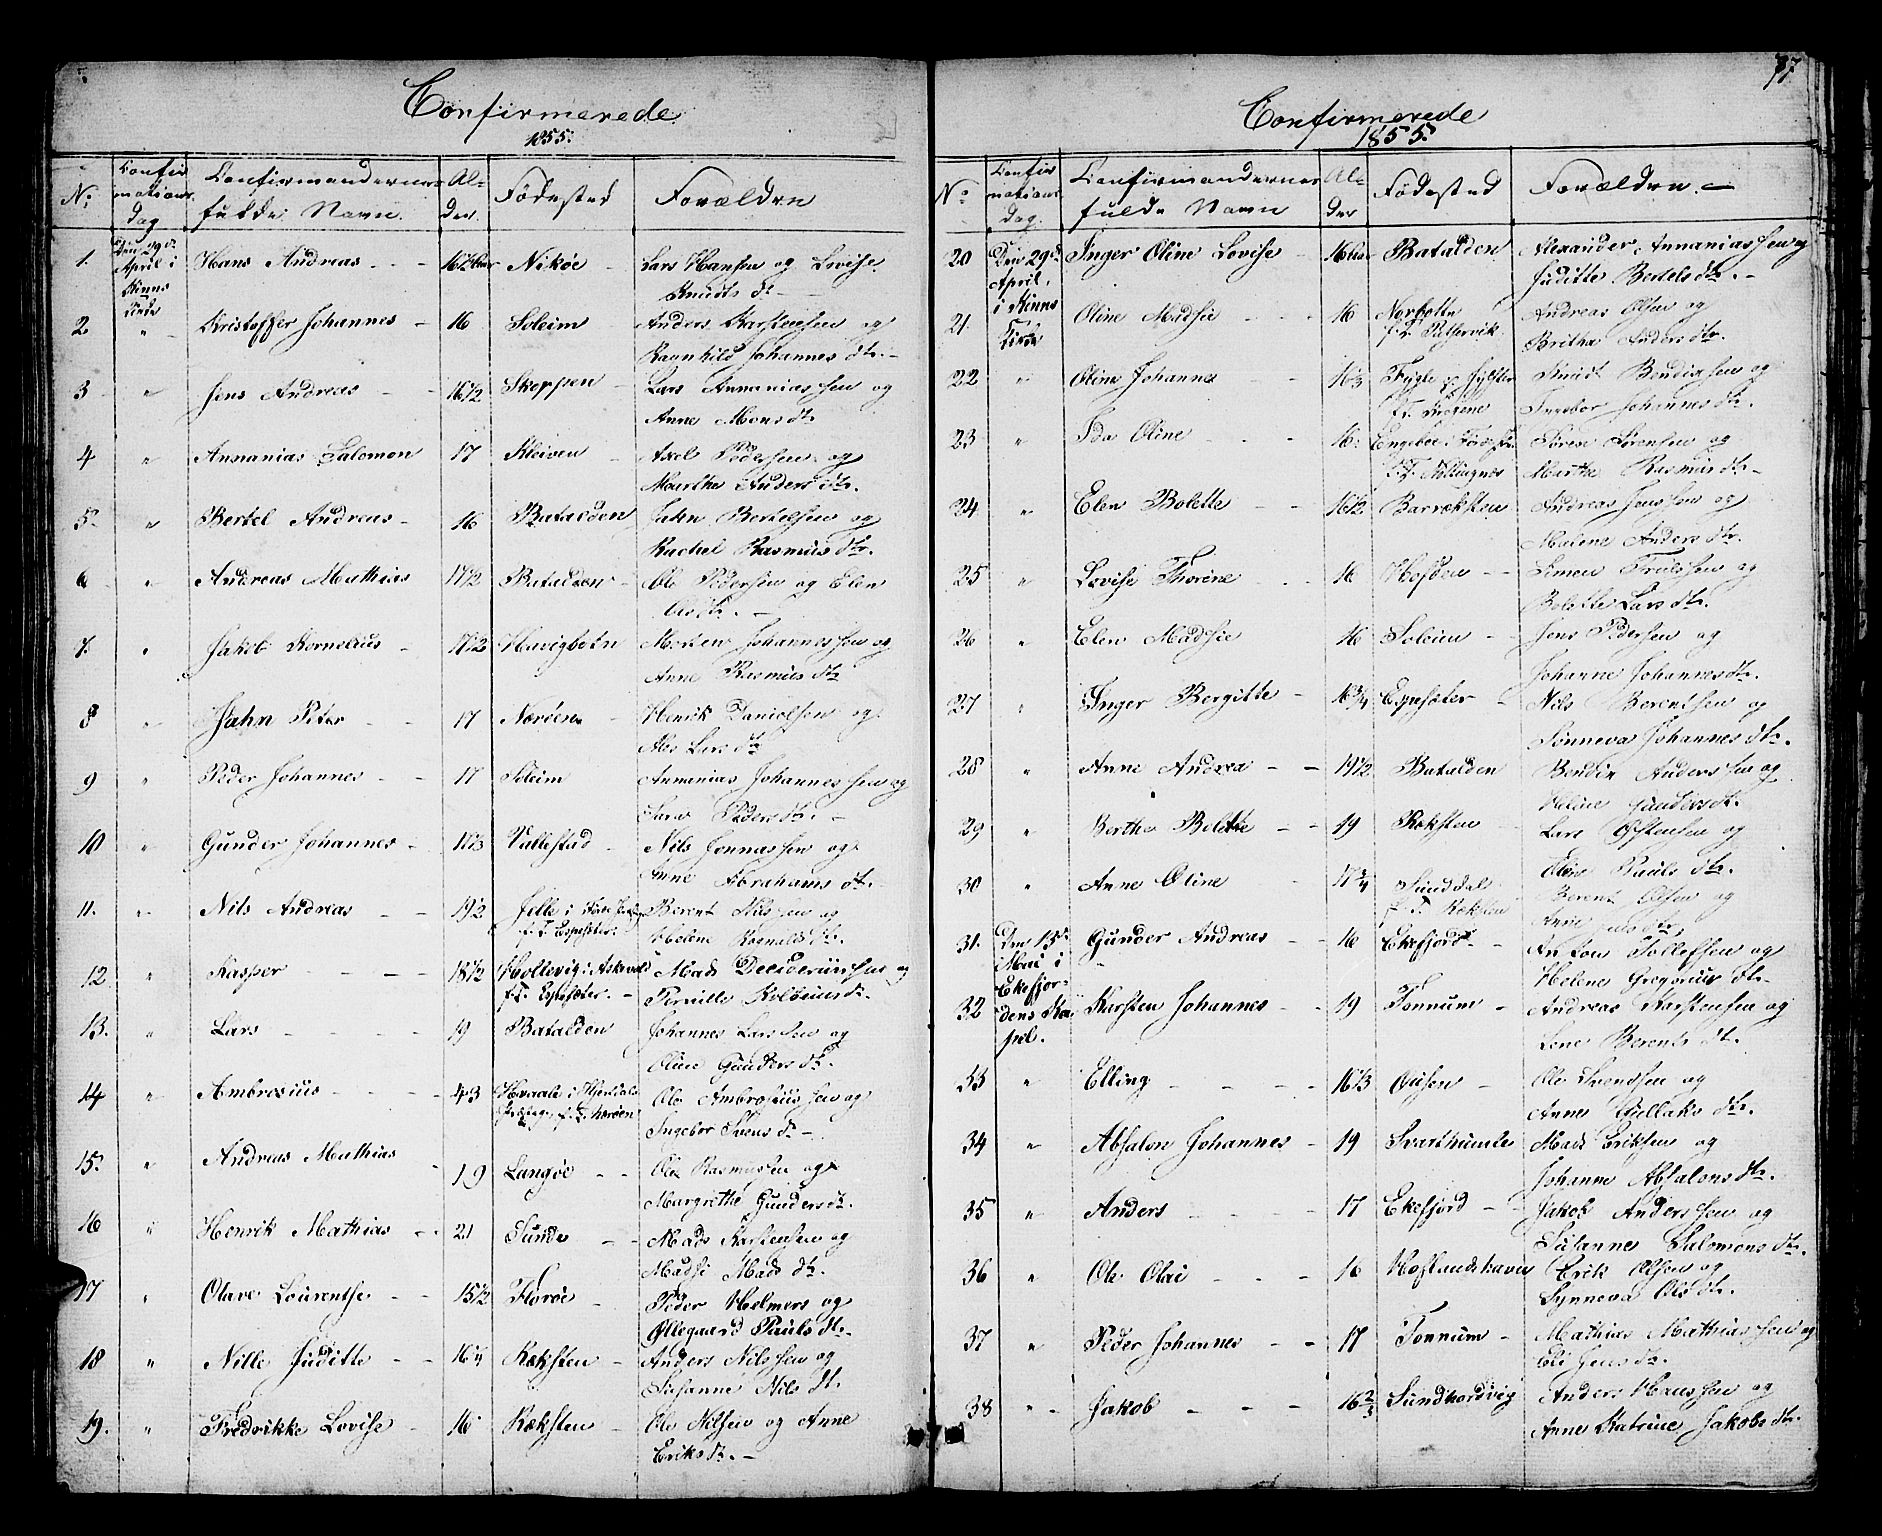 Confirmerede
1855.
No. Confirmations dag Confirmandernes fulde Navn. Alder. Fødested Forældre
1. Den 29de April i Kinns Kirke Hans Andreas 16 1/2 Aar Nikøe Lars Hansen og Lovise
Knudts dt.
2 " Kristoffer Johannes 16 Soleim Anders Karstensen og
Ragnhild Johannes dtr.
3 " Jens Andreas 16 1/2 Skorpen Lars Annaniassen og
Anne Mons dtr
4 " Annanias Salomon 17 Kleiven Axel Pedersen og
Marthe Anders dtr.
5. " Bertel Andreas 16 Batalden Jahn Bertelsen og
Rachel Rasmus dtr.
6 " Andreas Mathias 17 1/2 Batalden Ole Pedersen og Elen
Ols dtr.
7. " Jakob Kornelius 17 1/2 Havigbotn Morten Johannessen og
Anne Rasmus dtr
8 " Jahn Peter 17 Nærøen Henrik Danielsen og
Lars dtr
9 " Peder Johannes 17 Soleim Annanias Johannessen og
Sara Peders dtr.
10 " Gunder Johannes 17 1/3 Vallestad Nils Jonnassen og
Anne Abrahams dt.
11. " Nils Andreas 19 1/2 Jelle i Førde
f. T. Espesæter. Berent Nilssen og
Helene Rognalds dtr.
12 " Kasper 18 1/2 Hollevig i Askevold
f. T. Espesæter. Mads og
13. " Lars 19 Batalden Johannes Larssen og
Oline Gunders dtr.
14 " Ambrosius 43 i
f. T. Nærøen Ole Ambrosiussen og
Ingebor Svens dt
15. " Andreas Mathias 19 Langøe Ole Rasmussen og
Margrethe Gunders dt.
16 " Henrik Mathias 21 Sunde Mads Karstensen og
Madsi Mads dt.
17 " Olave Lourentse 15 1/2 Florøe Peder Helmers og
Ollegaard Pauls dt.
18 " Nille Juditte 16 1/4 Ræksten Anders Nilssen og
Susanne Nils dt
19. " Fredrikke Lovise 16 Ræksten Ole Nilsen og Anne
Eriks dt.
97
Confirmerede
1855.
No. Confirmations dag. Confirmandernes fulde Navn Alder Fødested Forældre.
20 Den 29de April, i Kinns Kirke Inger Oline Lovise 16 Aar Batalden Alexander Annaniassen og
Juditte Bertels dtr.
21. Oline Madsie 16 Norbotten
f. T. Andreas Olsen og
Britha Anders dtr.
22 " Oline Johanne 16 1/3
f. T. Knudt Bendixsen og
Ingebor Johannes dtr.
23 " Ida Oline 16
f. T. Sørensen og
Marthe Rasmus dtr
24 " Elen Bolette 16 1/2 Barræksten Andreas Jenssen og
Malene Anders dtr.
25 " Lovise Thorine 16 Hofden Simen Trulssen og
Bolette Lars dtr.
26 " Elen Madsie 16 Soleim Jens Pedersen og
Johanne Johannes dtr.
27 " Inger Bergitte 16 3/4 Espesæter Nils Berentsen og
Sønneva Johannes dtr.
28 " Anne Andrea 17 1/2 Batalden Bendix Anderssen og
Heline Gunders dtr.
29 " Berthe Bolette 19 Ræksten Lars Ostensen og
Oline Pauls dtr.
30 " Anne Oline 17 3/4 Sunddal
f. T. Ræksten Berent Olsen og
Anne dtr.
31. Den 15de Mai i Ekefjordens Kapel. Gunder Andreas 16 Ekefjord Anton Tollefsen og
Helene Gregorius dtr.
32 Karsten Johannes 19 Tonnum Andreas Karstensen og
Lene Berents dt.
33 " Elling 16 1/3 Ousen Ole Svendsen og
Anne dtr.
34 " Absalon Johannes 19 Svarthumle Mads Eriksen og
Johanne Absalons dtr.
35 " Anders 17 Ekefjord Jakob Anderssen og
Susanne Salomons dtr.
36 " Ole Olai 16 Hoflandshavn Erik Olsen og
Synneva Ols dtr.
37 " Peder Johannes 17 Tonnum Mathias Mathiassen og
Eli Jens dt.
38 " Jakob 16 2/3 Sundhordvig Anders Hanssen og
Anne Katrine Jakobs dtr.